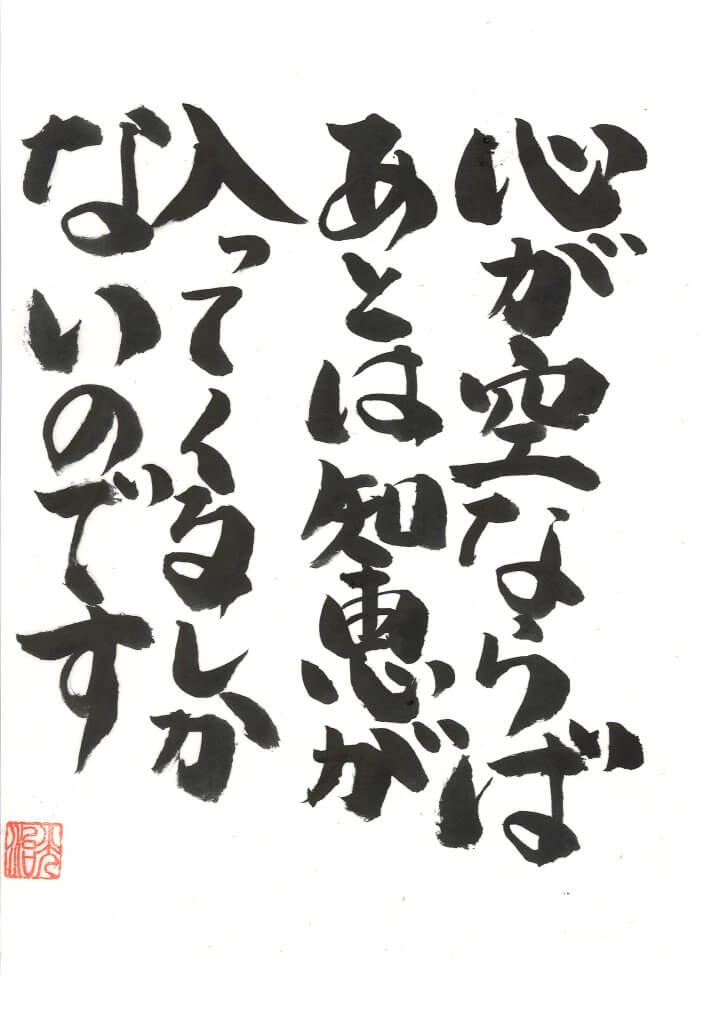 心が空ならば
あとは知恵が
入ってくるしか
ないのです